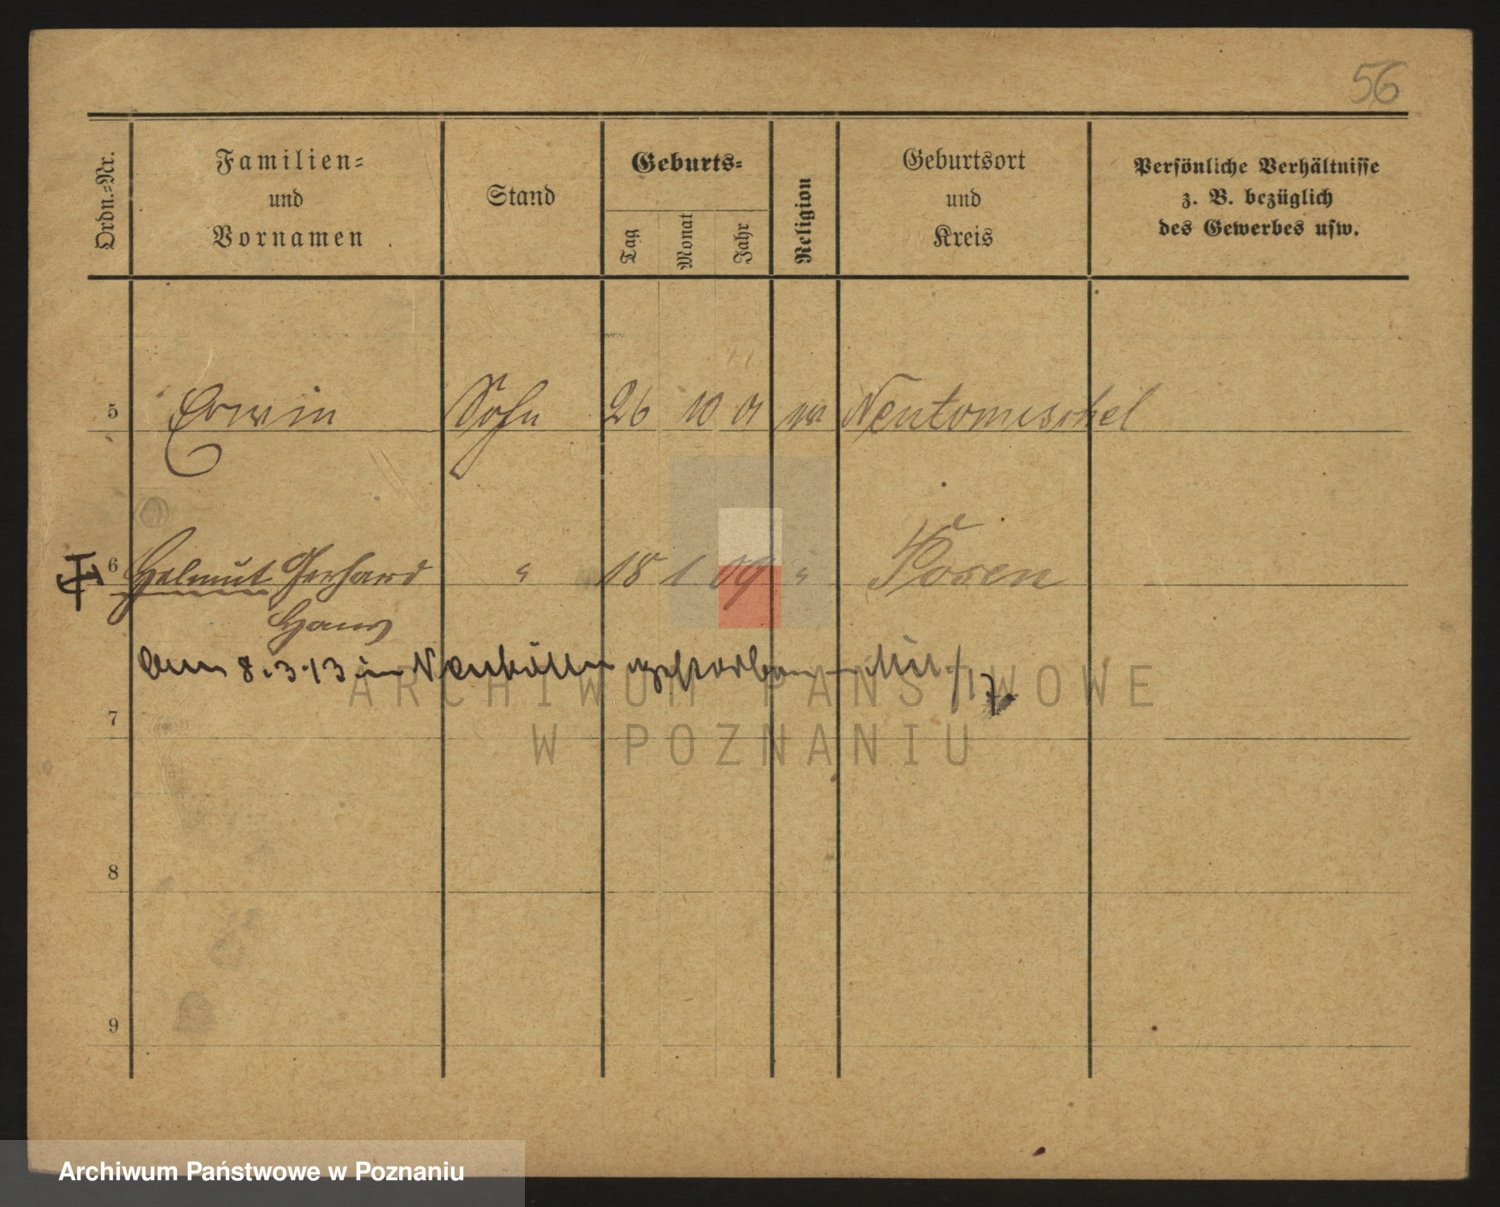 56
Ordn.-Nr.
Familien-
und
Vornamen
Stand
Geburts-
Tag
Monat
Jahr
Religion
Geburtsort
und
Kreis
Persönliche Verhältnisse
z. B. bezüglich
des Gewerbes usw.
5 Erwin Sohn 26 10 01 Neutomischel
6 Helmut Gerhard " 18 1 09 " Posen
Hans
8.3.13 in gestorben
ARCHIWUM PAŃSTWOWE
7
W POZNANIU
8
9
Archiwum Państwowe w Poznaniu